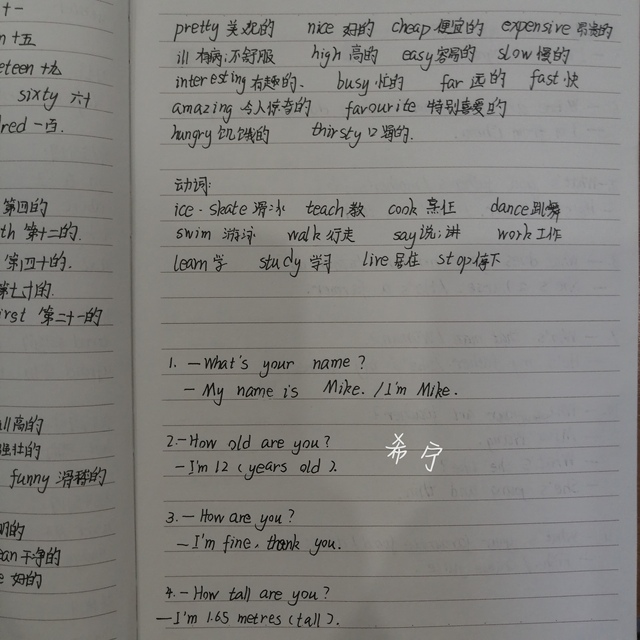 十一
n 十五
eteen 十九
sixty 六十
dred 一百.
第四的
th 第十二的.
第四十的.
第七十的.
irst 第二十一的
ll高的
强壮的
funny 滑稽的
an 干净的
e 好的
pretty 美观的 nice 好的 cheap 便宜的 expensive 昂贵的
ill 有病;不舒服 high 高的 easy容易的 slow 慢的
interesting 有趣的. busy 忙的 far 远的 fast 快
amazing 令人惊奇的 favourite 特别喜爱的
hungry 饥饿的 thirsty 口渴的.
动词:
ice-skate 滑冰 teach 教 cook 烹饪 dance跳舞
swim 游泳 walk 行走 say说;讲 work 工作
learn 学 study 学习 live 居住 stop停下
1. —What's your name?
— My name is Mike. / I'm Mike.
2.—How old are you?
—I'm 12 (years old).
希宁
3. — How are you?
— I'm fine, thank you.
4. — How tall are you?
—I'm 1.65 metres (tall).